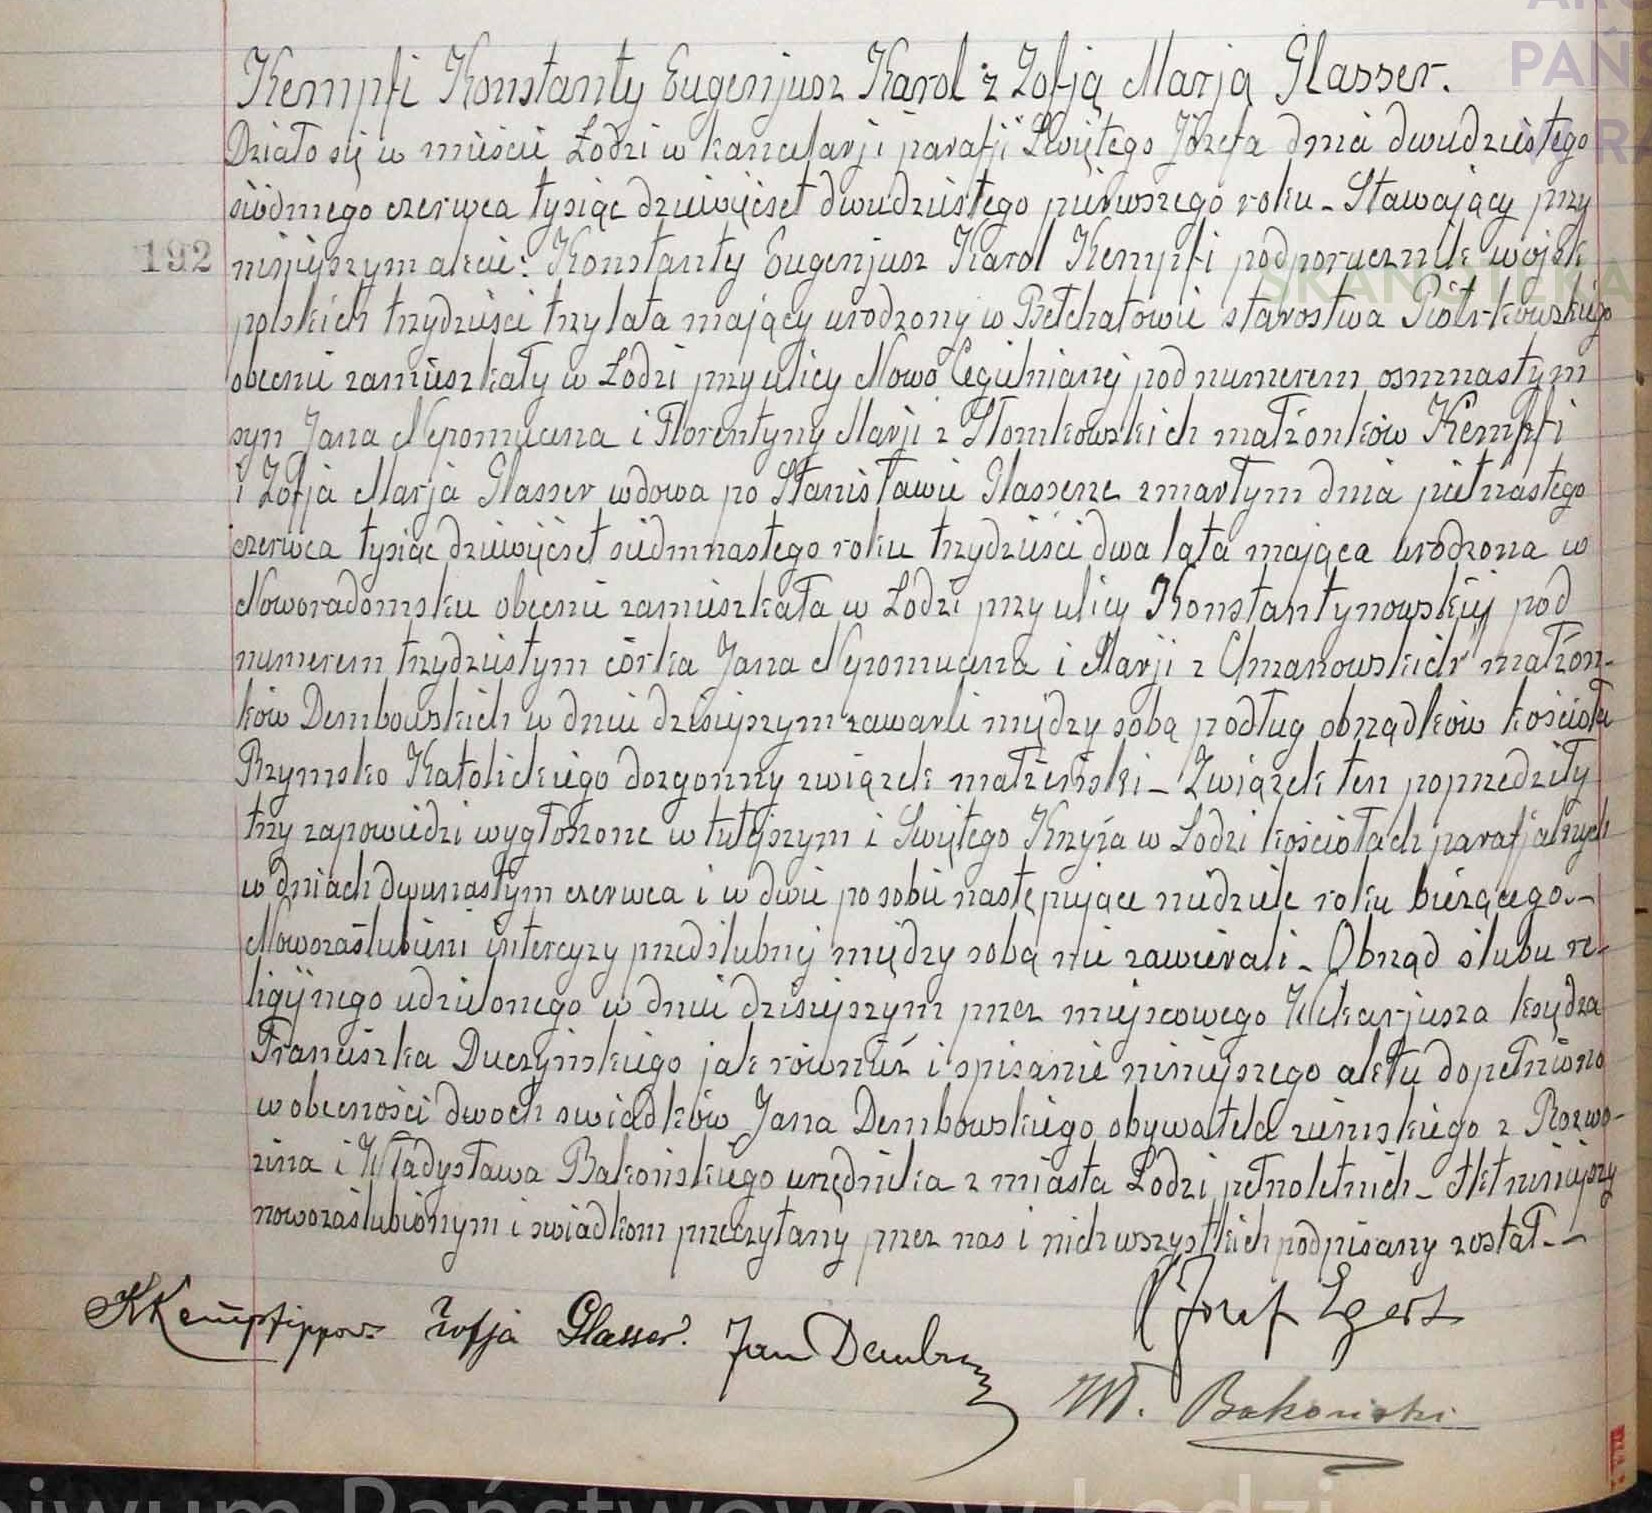 Kempfi Konstanty Eugenjusz Karol z Zofją Marją Glasser.
Działo się w mieście Łodzi w kancelarji parafji Świętego Józefa dnia dwudziestego
siódmego czerwca tysiąc dziewięćset dwudziestego pierwszego roku – Stawający przy
192 niniejszym akcie: Konstanty Eugenjusz Karol Kempfi podporucznik wojsk
polskich trzydzieści trzy lata mający urodzony w Bełchatowie starostwa Piotrkowskiego
obecnie zamieszkały w Łodzi przy ulicy Nowo Cegielnianej pod numerem osmnastym
syn Jana Nepomucena i Florentyny Marji z Słomkowskich małżonków Kempfi
i Zofja Marja Glasser wdowa po Stanisławie Glasserze zmarłym dnia pietnastego
czerwca tysiąc dziewięćset siedmnastego roku trzydzieści dwa lata mająca urodzona w
Noworadomsku obecnie zamieszkała w Łodzi przy ulicy Konstantynowskiej pod
numerem trzydziestym córka Jana Nepomucena i Marji z Chmanowskich małżon-
ków Dembowskich w dniu dzisiejszym zawarli między sobą podług obrządków kościoła
Rzymsko Katolickiego dozgonny związek małżeński – Związek ten poprzedziły
trzy zapowiedzi wygłoszone w tutejszym i Świętego Krzyża w Łodzi kościołach parafjalnych
w dniach dwunastym czerwca i w dwie po sobie następujące niedziele roku bieżącego. –
Nowozaślubieni intercyzy przedślubnej między sobą nie zawierali – Obrząd ślubu re-
ligijnego udzielonego w dniu dzisiejszym przez miejscowego Wikarjusza księdza
Franciszka Duczyńskiego jak również i spisanie niniejszego aktu dopełniono
w obecności dwoch swiadków Jana Dembowskiego obywatela ziemskiego z Rozwo-
zina i Władysława Bakońskiego urzędnika z miasta Łodzi pełnoletnich – Akt niniejszy
nowozaślubionym i swiadkom przeczytany przez nas i nich wszystkich podpisany został. –
KKempfippor. Zofja Glasser. Jan Demb
X Józef Egert
Wł. Bakoński
ARC
PAŃS
SKANOTEKA
Archiwum Państwowe w Łodzi